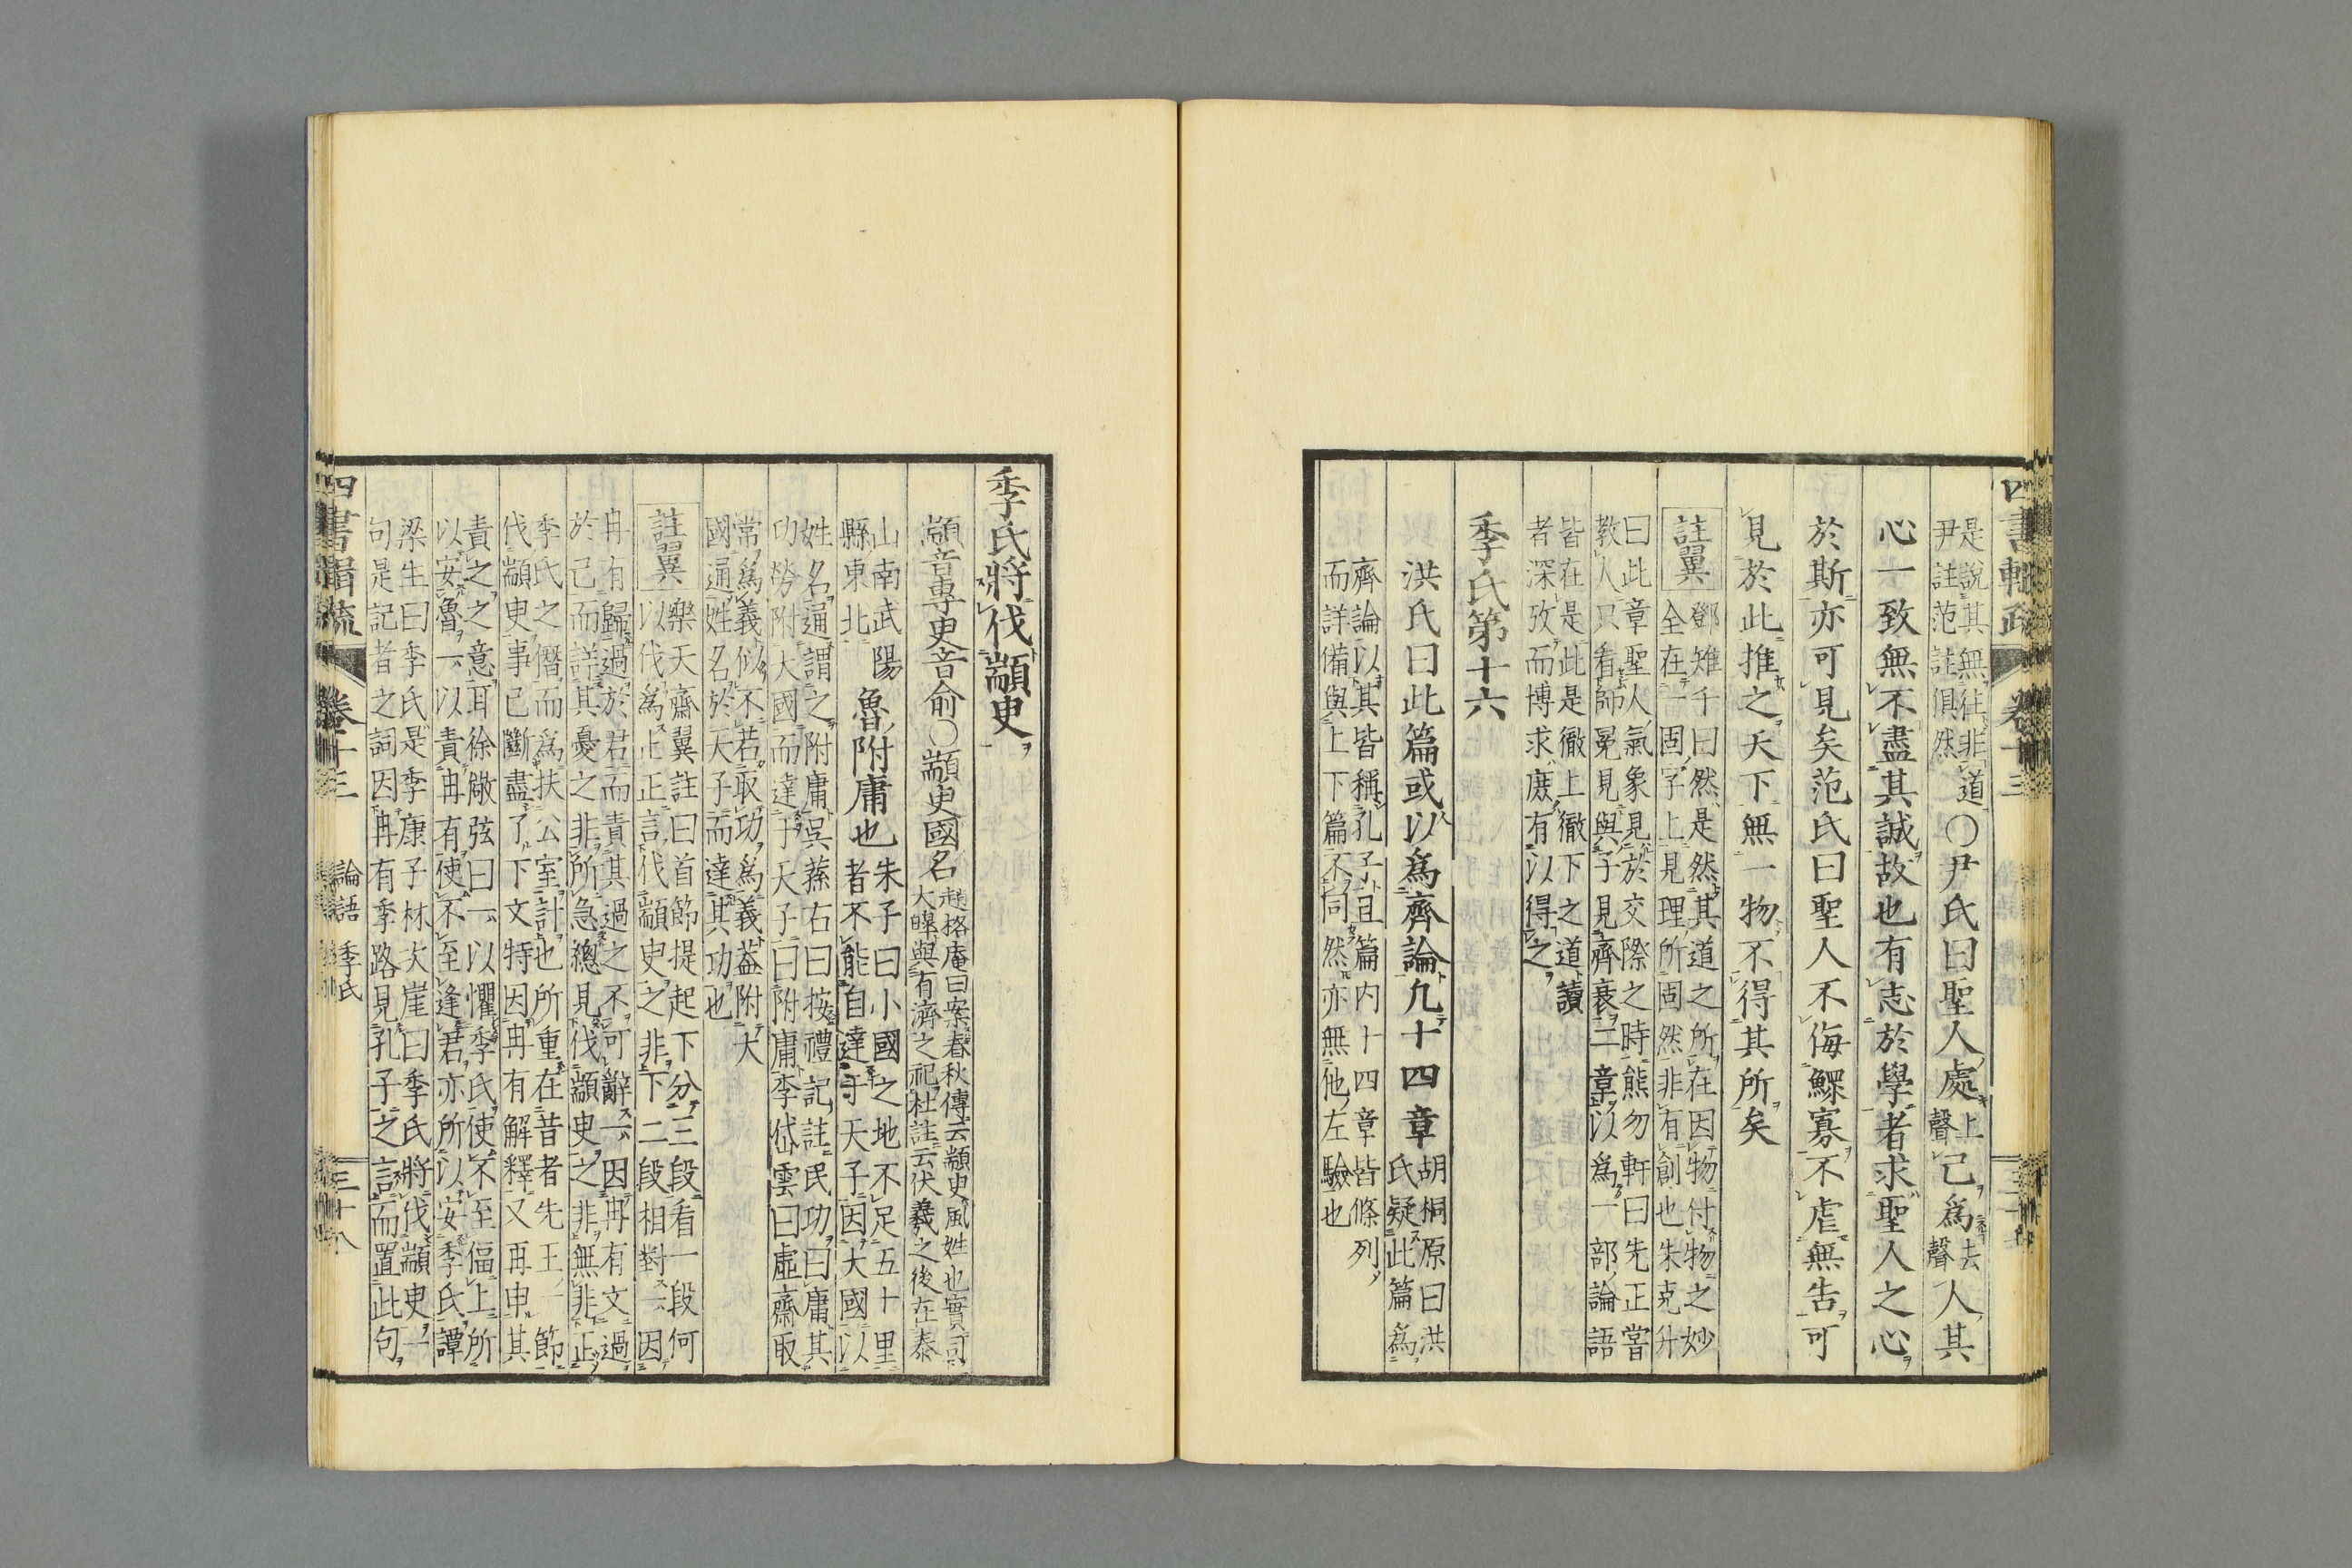 是說其無往非道
尹註范註俱然
〇尹氏曰聖人處上聲己爲去聲人其
心一致無不盡其誠故也有志於學者求聖人之心
於斯亦可見矣范氏曰聖人不侮鰥寡不虐無告可
見於此推之天下無一物不得其所矣
註翼
鄧雉千曰然是然其道之所在因物付物之妙
全在一固字上見理所固然非有創也朱克升
曰此章聖人氣象見於交際之時熊勿軒曰先正嘗
教人只看師冕見與子見齊衰二章以爲一部論語
皆在是此是徹上徹下之道讀
者深攷而博求庶有以得之
季氏第十六
洪氏曰此篇或以爲齊論凡十四章
胡桐原曰洪
氏疑此篇爲
齊論以其皆稱孔子且篇内十四章皆條列
而詳備與上下篇不同然亦無他左驗也
季氏將伐顓臾
顓音專臾音俞〇顓臾國名
趙格庵曰案春秋傳云顓臾風姓也實司
大皥與有濟之祀杜註云伏羲之後在泰
山南武陽
縣東北
魯附庸也
朱子曰小國之地不足五十里
者不能自達于天子因大國以
姓名通謂之附庸吳蓀右曰按禮記註民功曰庸其
功勞附大國而達于天子曰附庸李岱雲曰虛齋取
常爲義似不若取功爲義葢附大
國通姓名於天子而達其功也
註翼
樂天齋翼註曰首節提起下分三段看一段何
以伐爲止正言伐顓臾之非下二段相對一因
冉有歸過於君而責其過之不可辭一因冉有文過
於己而詳其憂之非所急總見伐顓臾之非無非正
季氏之僭而爲扶公室計也所重在昔者先王一節
伐顓臾事已斷盡了下文特因冉有解釋又再申其
責之之意耳徐儆弦曰一以懼季氏使不至偪上所
以安魯一以責冉有使不至逢君亦所以安季氏譚
梁生曰季氏是季康子林次崖曰季氏將伐顓臾一
句是記者之詞因冉有季路見孔子之言而置此句
四書輯疏
卷十三
論語 季氏
三十八